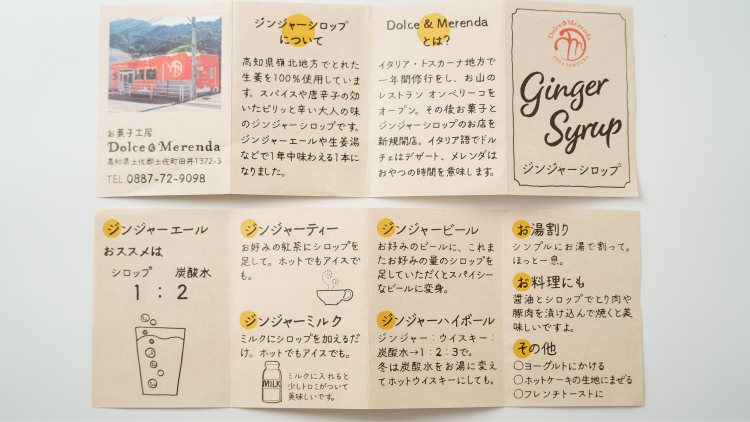 お菓子工房
Dolce & Merenda
高知県土佐郡土佐町田井1372-3
TEL 0887-72-9098
ジンジャーシロップ
について
高知県嶺北地方でとれた
生姜を100%使用していま
す。スパイスや唐辛子の効
いたピリッと辛い大人の味
のジンジャーシロップです。
ジンジャーエールや生姜湯
などで1年中味わえる1本に
なりました。
Dolce & Merenda
とは?
イタリア・トスカーナ地方で
一年間修行をし、お山の
レストラン オンベリーコを
オープン。その後お菓子と
ジンジャーシロップのお店を
新規開店。イタリア語でドル
チェはデザート、メレンダは
おやつの時間を意味します。
Dolce & Merenda
Ginger
Syrup
ジンジャーシロップ
ジンジャーエール
おススメは
シロップ 炭酸水
1 : 2
ジンジャーティー
お好みの紅茶にシロップを
足して。ホットでもアイスで
も。
ジンジャーミルク
ミルクにシロップを加えるだ
け。ホットでもアイスでも。
MILK
ミルクに入れると
少しトロミがついて
美味しいです。
ジンジャービール
お好みのビールに、これま
たお好みの量のシロップを
足していただくとスパイシー
なビールに変身。
ジンジャーハイボール
ジンジャー:ウイスキー:
炭酸水→1:2:3で。
冬は炭酸水をお湯に変え
てホットウイスキーにしても。
お湯割り
シンプルにお湯で割って。
ほっと一息。
お料理にも
醤油とシロップでとり肉や
豚肉を漬け込んで焼くと美
味しいですよ。
その他
○ヨーグルトにかける
○ホットケーキの生地にまぜる
○フレンチトーストに